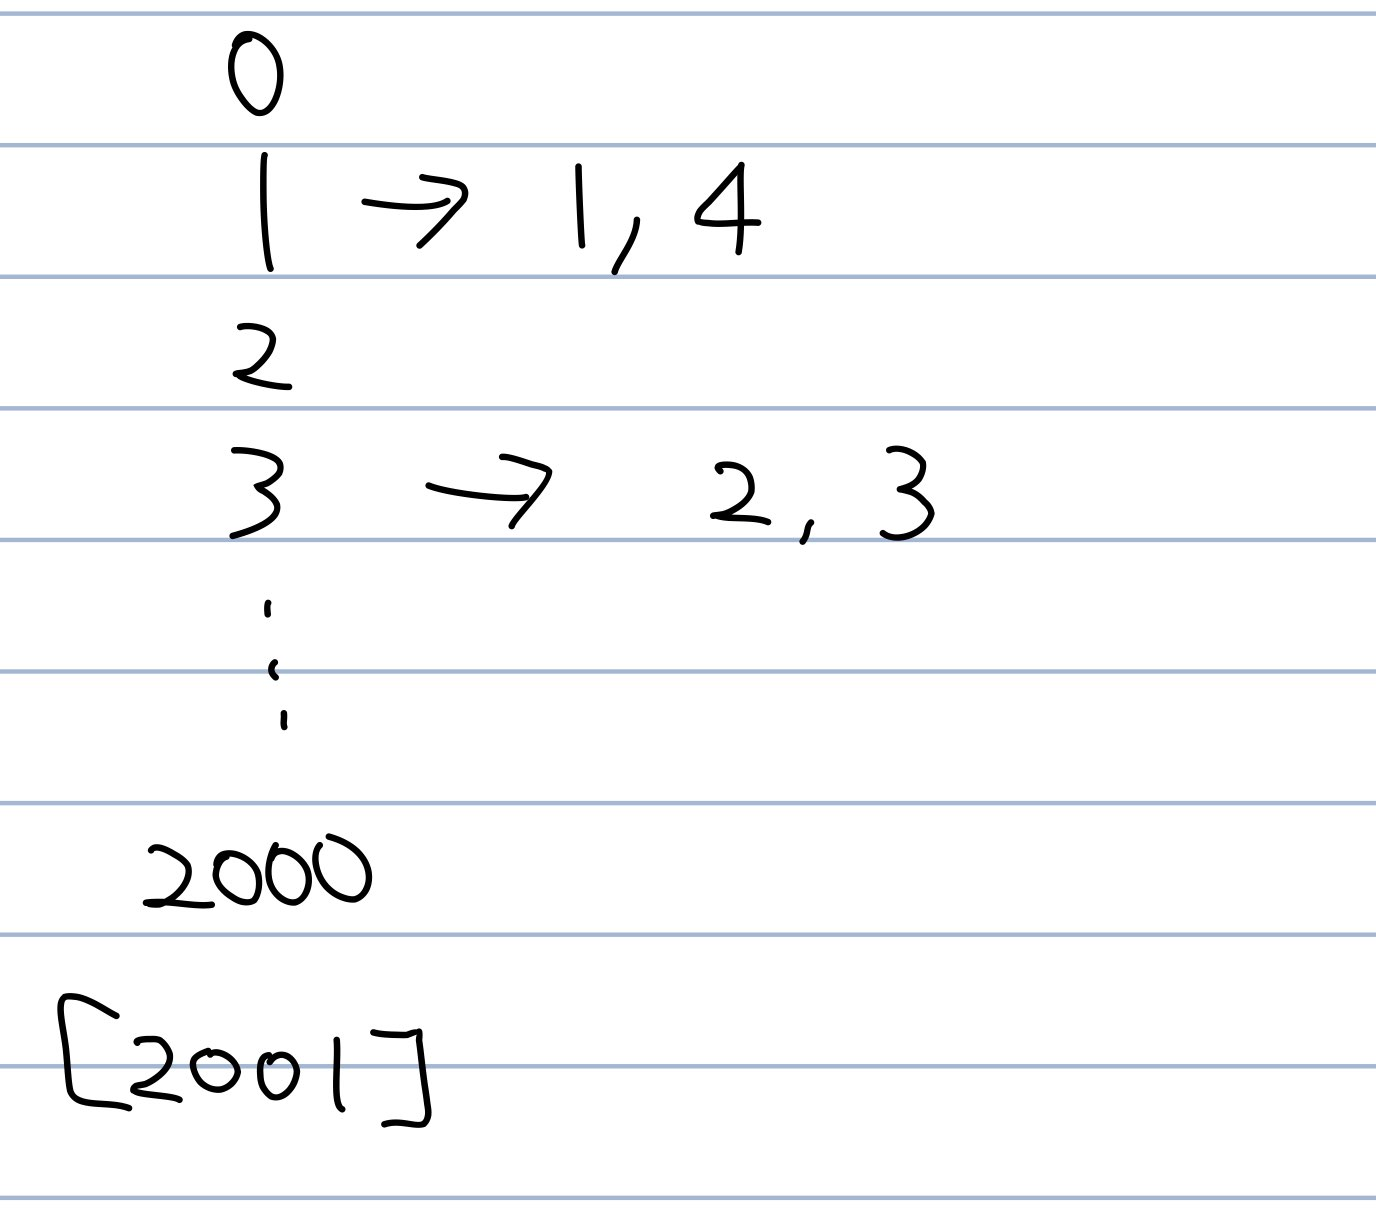 0
1 → 1, 4
2
3 → 2, 3
⋮
2000
[2001]